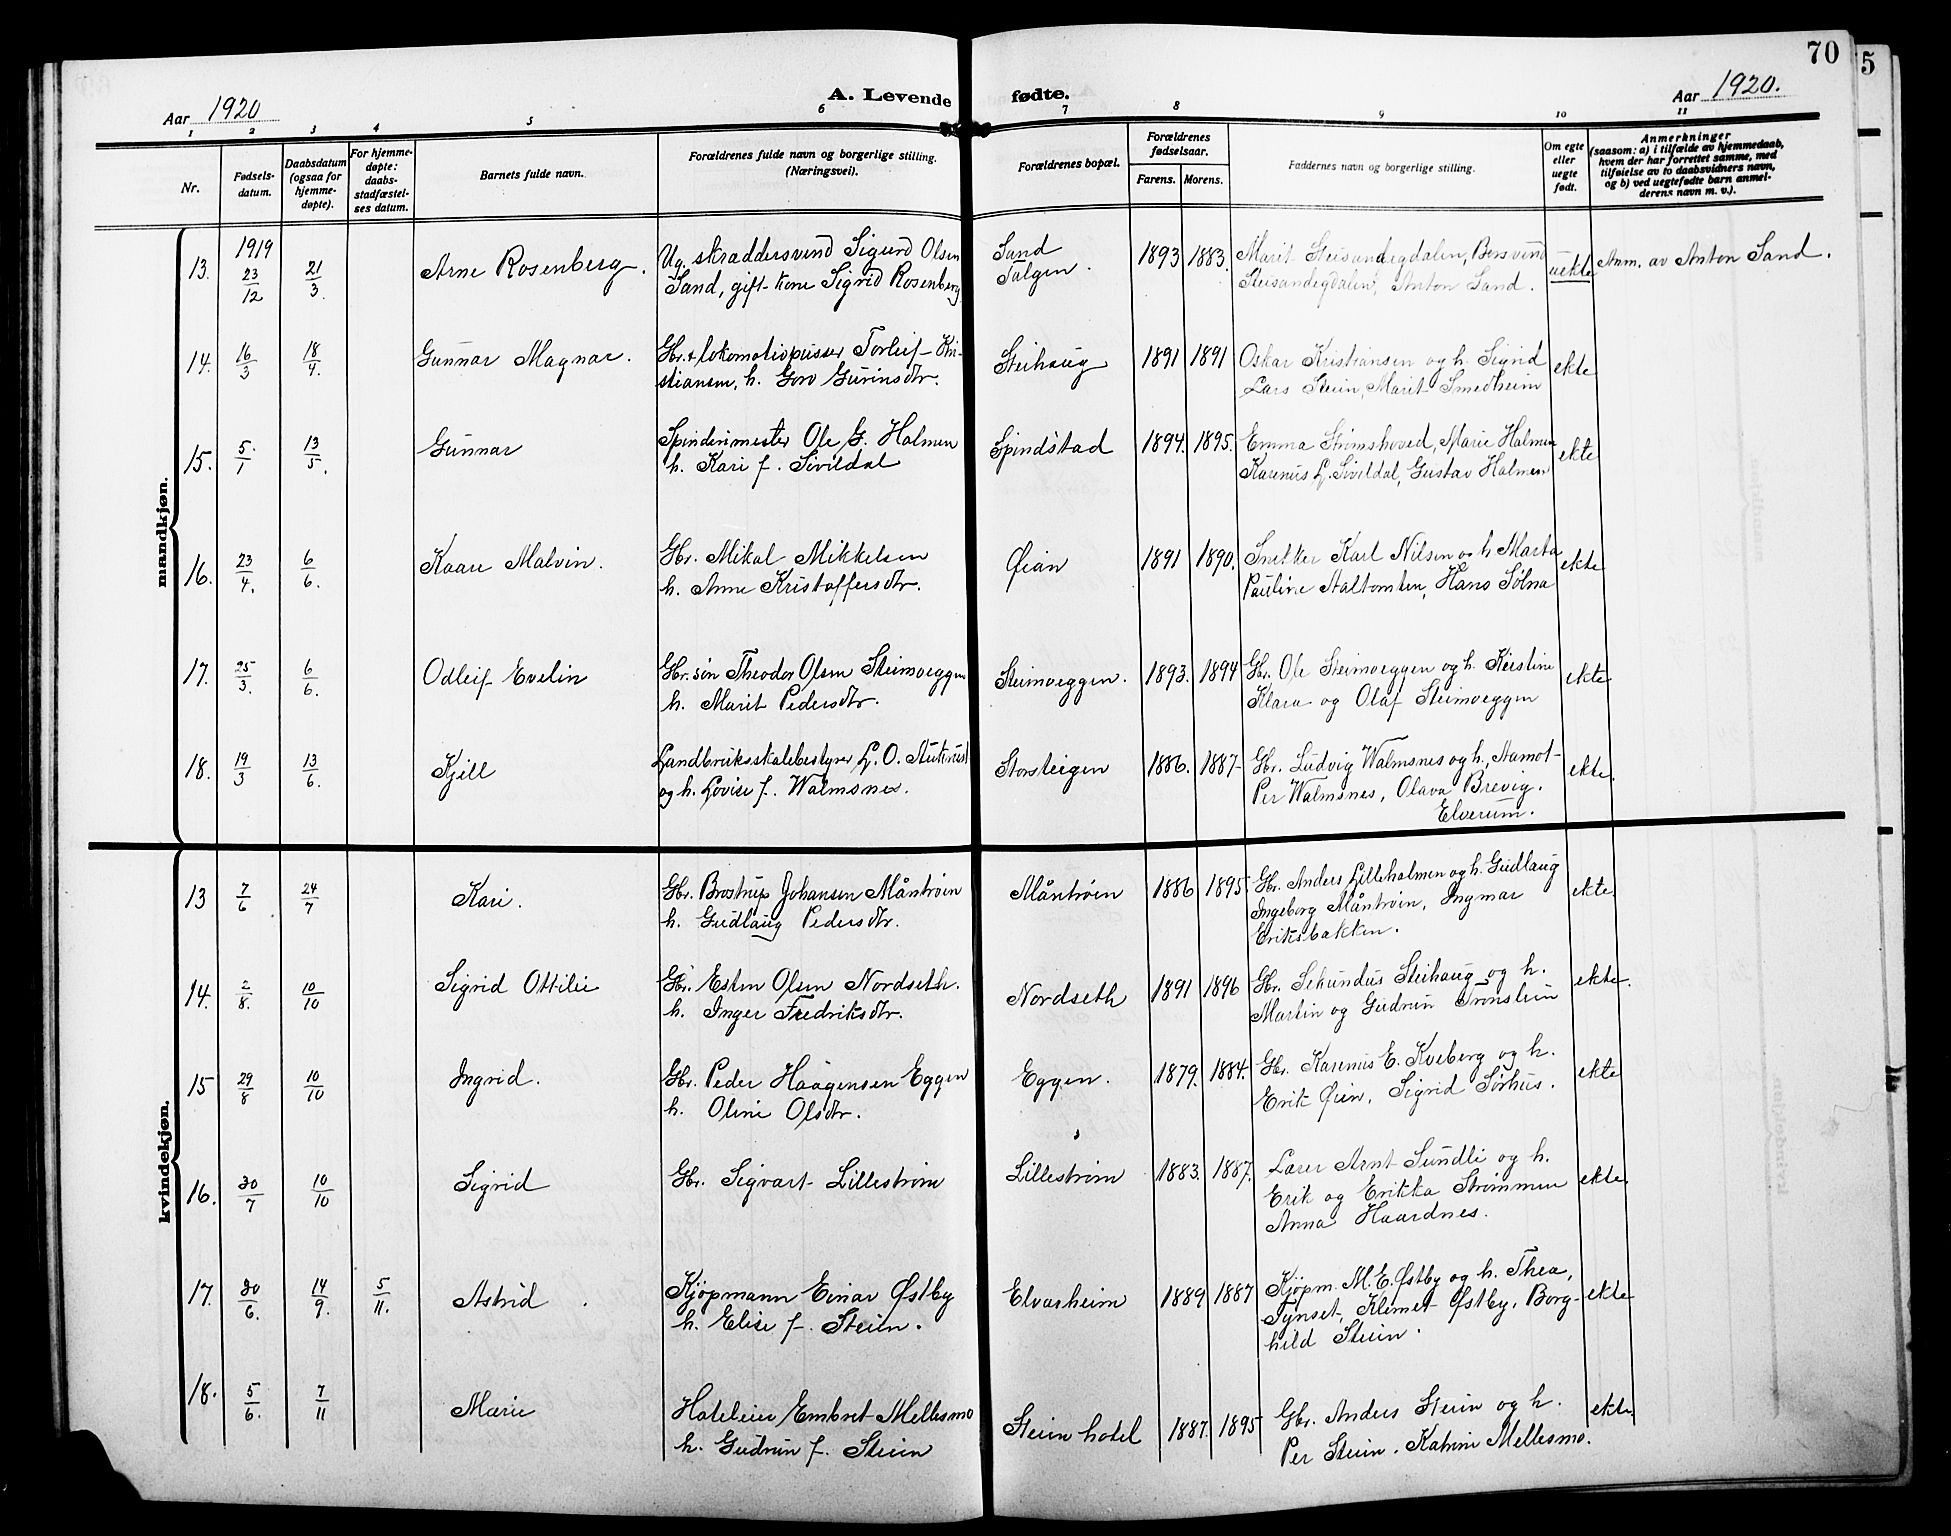 70
5
Aar 1920
A. Levende fødte.
Aar 1920.
1 2 3 4 5 6 7 8 9 10 11
Nr.
Fødsels-
datum.
Daabsdatum
(ogsaa for
hjemme-
døpte).
For hjemme-
døpte:
daabs-
stadfæstel-
ses datum.
Barnets fulde navn.
Forældrenes fulde navn og borgerlige stilling.
(Næringsvei).
Forældrenes bopæl.
Forældrenes
fødselsaar.
Farens. Morens.
Faddernes navn og borgerlige stilling.
Om egte
eller
uegte
født.
Anmerkninger
(saasom: a) i tilfælde av hjemmedaab,
hvem der har forrettet samme, med
tilføielse av to daabsvidners navn,
og b) ved uegtefødte barn anmel-
derens navn m. v.).
mandkjøn.
13. 1919 23/12 21/3. Arne Rosenberg. Ug. skræddersvend Sigurd Olsen
Sand, gift kone Sigrid Rosenberg
Sand
Talgen.
1893 1883. Marit Steisandegdalen, Bersvend
Steisandegdalen, Anton Sand.
uekte Anm. av Anton Sand.
14. 16/3 18/4. Gunnar Magnar. Gbr. & lokomotivpusser Torleif Kri-
stiansen, h. Goro Gurinsdtr.
Steihaug 1891 1891 Oskar Kristiansen og h. Sigrid
Lars Steien, Marit Smedheim
ekte
15. 5/1 13/5. Gunnar Spinderimester Ole G. Holmen
h. Kari f. Sivildal
Spindstad 1894. 1895. Emma Strimshoved, Marie Holmen
Karenus L. Sivildal, Gustav Holmen
ekte
16. 23/4. 6/6. Kaare Malvin. Gbr. Mikal Mikkelsen
h. Anne Kristoffersdtr.
Øian 1891 1890. Snekker Karl Nilsen og h Marta
Pauline Aaltomten, Hans Sølna
ekte
17. 25/3. 6/6. Odleif Evelin Gbr. søn Theodor Olsen Steimoeggen
h. Marit Pedersdtr.
Steimoeggen. 1893. 1894 Gbr. Ole Steimoeggen og h. Kirstine
Klara og Olaf Steimoeggen
ekte
18. 19/3 13/6. Kjell Landbruksskolebestyrer L. O. Aukrust
og h. Lovise f. Walmsnes.
Storsteigen 1886. 1887- Gbr. Ludvig Walmsnes og h., Aamot-
Per Walmsnes, Olava Brevig.
Elverum.
ekte.
kvindekjøn.
13 7/6 24/7 Kari. Gbr. Brostrup Johansen Måntrøien
h. Gudlaug Pedersdtr.
Måntrøien 1886 1895 Gbr. Anders Lilleholmen og h. Gudlaug
Ingeborg Måntrøien, Ingmar
Eriksbakken.
ekte.
14. 2/8. 10/10 Sigrid Ottilie Gbr. Esten Olsen Nordseth.
h. Inger Fredriksdtr.
Nordseth 1891 1896 Gbr. Sekundus Steihaug og h.
Martin og Gudrun Tronslien
ekte.
15 29/8 10/10 Ingrid. Gbr. Peder Haagensen Eggen
h. Oline Olsdtr.
Eggen. 1879. 1884. Gbr. Karenus E. Kveberg og h.
Erik Øien, Sigrid Sørhus.
ekte
16. 30/7 10/10 Sigrid Gbr. Sigvart Lillestrøm
Lillestrøm 1883. 1887. Lærer Arnt Sundli og h.
Erik og Erikka Strømmen
Anna Haardnes.
ekte.
17. 30/6. 14/9. 5/11. Astrid. Kjøpmann Einar Østby
h. Elise f. Steien.
Elvarheim 1889 1887 Kjøpm. M. E. Østby og h. Thea,
Tynset, Klemet Østby, Borg-
hild Steien.
ekte
18. 5/6. 7/11 Marie Hoteleier Embret Mellesmo
h. Gudrun f. Steien
Steien hotel 1887. 1895 Gbr. Anders Steien og h.
Per Steien. Katrine Mellesmo.
ekte